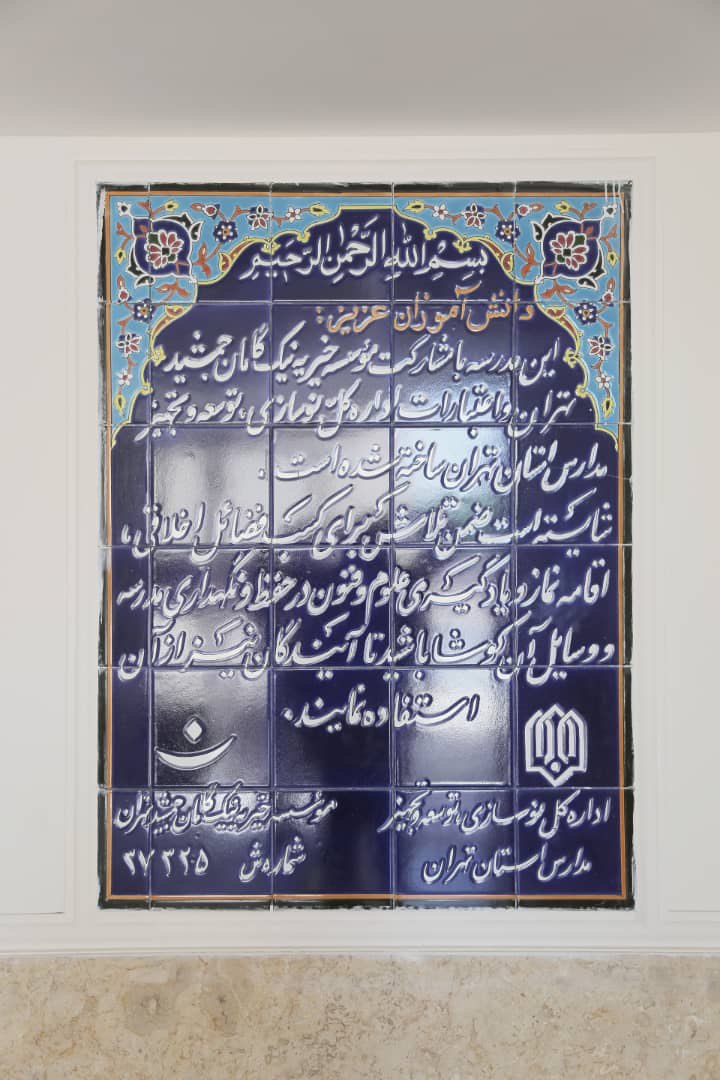 بِسْمِ اللهِ الرَّحْمٰنِ الرَّحیمِ
دانش آموزان عزیز:
این مدرسه با مشارکت مؤسسه خیریه نیک گامان جمشید
تهران و اعتبارات اداره کل نوسازی، توسعه و تجهیز
مدارس استان تهران ساخته شده است.
شایسته است ضمن تلاش برای کسب فضائل اخلاقی،
اقامه نماز و یادگیری علوم و فنون در حفظ و نگهداری مدرسه
و وسایل آن کوشا باشید تا آیندگان نیز از آن
استفاده نمایند.
اداره کل نوسازی، توسعه و تجهیز
مدارس استان تهران
مؤسسه خیریه نیک گامان جمشید تهران
شماره ش ۳۷۳۲۵